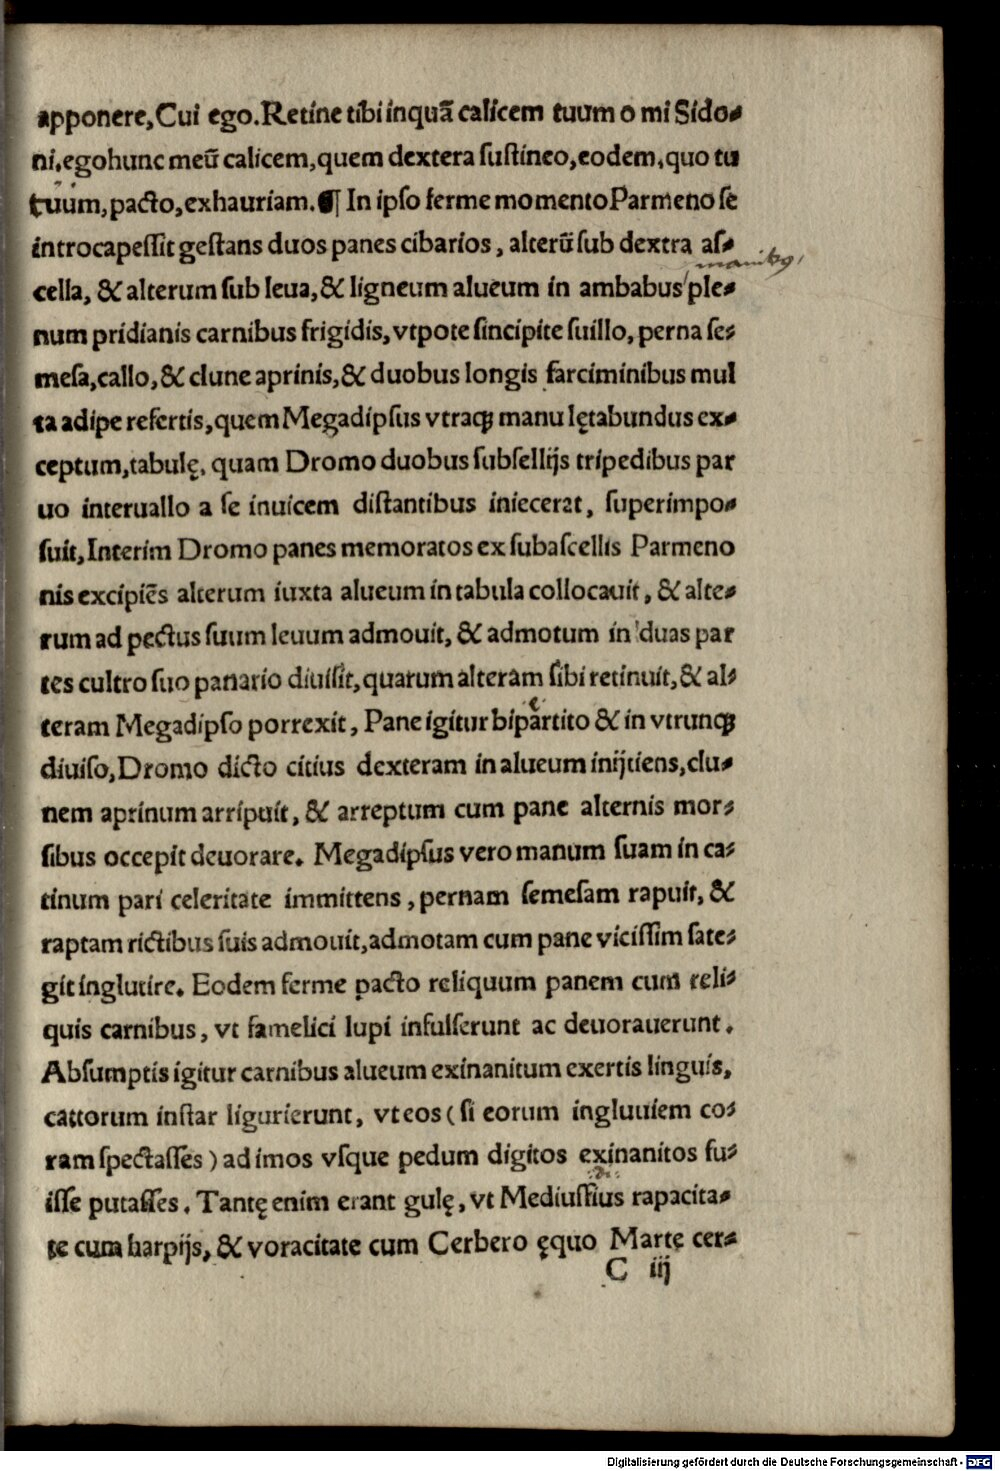 apponere, Cui ego. Retine tibi inquã calicem tuum o mi Sido-
ni, ego hunc meũ calicem, quem dextera ſuſtineo, eodem, quo tu
tuum, pacto, exhauriam. ¶ In ipſo ferme momento Parmeno ſe
introcapeſſit geſtans duos panes cibarios, alterũ ſub dextra aſ-
manibꝰ
cella, & alterum ſub leua, & ligneum alueum in ambabus ple-
num pridianis carnibus frigidis, vtpote ſincipite ſuillo, perna ſe-
meſa, callo, & clune aprinis, & duobus longis farciminibus mul
ta adipe refertis, quem Megadipſus vtraqꝫ manu lętabundus ex-
ceptum, tabulę, quam Dromo duobus ſubſellijs tripedibus par
uo interuallo a ſe inuicem diſtantibus iniecerat, ſuperimpo-
ſuit, Interim Dromo panes memoratos ex ſubaſcellis Parmeno
nis excipiẽs alterum iuxta alueum in tabula collocauit, & alte-
rum ad pectus ſuum leuum admouit, & admotum in duas par
tes cultro ſuo panario diuiſit, quarum alteram ſibi retinuit, & al-
teram Megadipſo porrexit, Pane igitur bipartito & in vtrunqꝫ
diuiſo, Dromo dicto citius dexteram in alueum inijciens, clu-
nem aprinum arripuit, & arreptum cum pane alternis mor-
ſibus occepit deuorare. Megadipſus vero manum ſuam in ca-
tinum pari celeritate immittens, pernam ſemeſam rapuit, &
raptam rictibus ſuis admouit, admotam cum pane viciſſim ſate-
git inglutire. Eodem ferme pacto reliquum panem cum reli-
quis carnibus, vt famelici lupi infulſerunt ac deuorauerunt.
Abſumptis igitur carnibus alueum exinanitum exertis linguis,
cattorum inſtar ligurierunt, vt eos (ſi eorum ingluuiem co-
ram ſpectaſſes) ad imos vſque pedum digitos exinanitos fu-
iſſe putaſſes. Tantę enim erant gulę, vt Mediuſſius rapacita-
te cum harpijs, & voracitate cum Cerbero ęquo Marte cer-
C iij
Digitalisierung gefördert durch die Deutsche Forschungsgemeinschaft - DFG